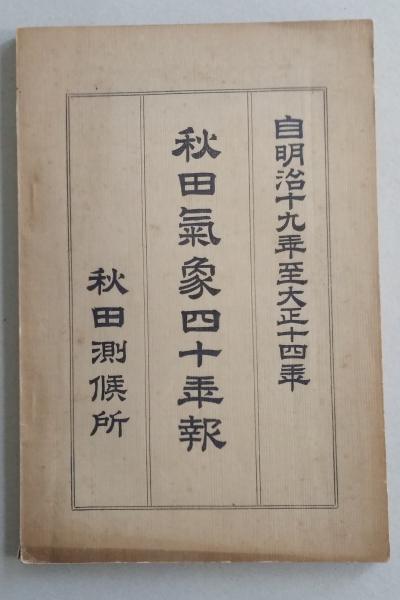 自明治十九年至大正十四年
秋田氣象四十年報
秋田測候所